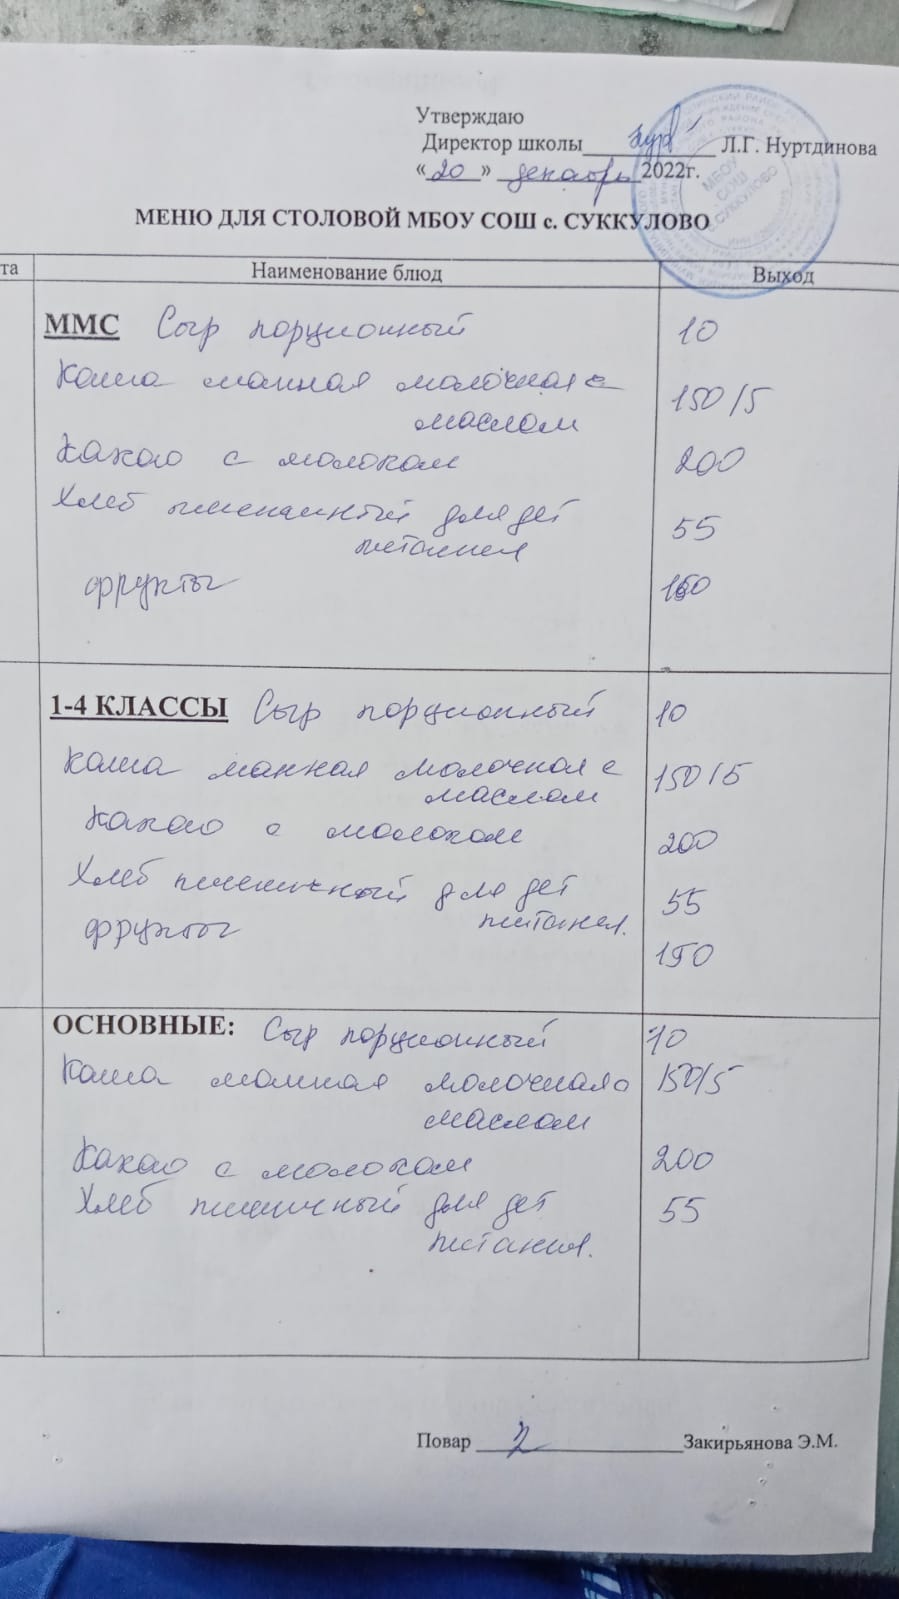 Утверждаю
Директор школы Л.Г. Нуртдинова
«20» декабрь 2022г.
МБОУ
СОШ
с. СУККУЛОВО
МЕНЮ ДЛЯ СТОЛОВОЙ МБОУ СОШ с. СУККУЛОВО
та Наименование блюд Выход
ММС Сыр порционный 10
Каша манная молочная с
маслом 150/5
Какао с молоком 200
Хлеб пшеничный для дет
питания 55
фрукты
1-4 КЛАССЫ Сыр порционный 10
Каша манная молочная с
маслом 150/5
Какао с молоком 200
Хлеб пшеничный для дет
питания. 55
фрукты 150
ОСНОВНЫЕ: Сыр порционный 10
Каша манная молочная с 150/5
маслом
Какао с молоком 200
Хлеб пшеничный для дет 55
питания.
Повар Закирьянова Э.М.